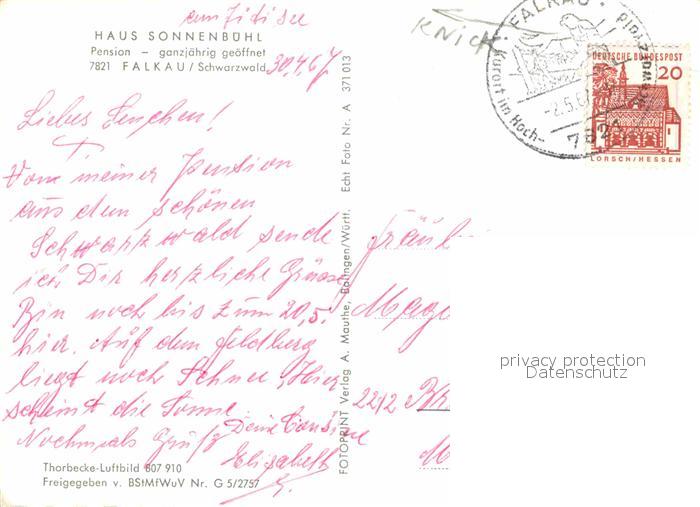 am Titisee
HAUS SONNENBÜHL
Pension – ganzjährig geöffnet
7821 FALKAU / Schwarzwald 30.4.67
Liebes Lenchen!
Von meiner Pension
aus dem schönen
Schwarzwald sende
ich Dir herzliche Grüsse
Bin noch bis zum 20.5.
hier. Auf dem Feldberg
liegt noch Schnee, Hier
scheint die Sonne.
Nochmals Gruß Deine Cousine
Elisabeth
Thorbecke-Luftbild 807 910
Freigegeben v. BStMfWuV Nr. G 5/2757
FOTOPRINT Verlag A. Mauthe, Balingen/Württ. Echt Foto Nr. A 371 013
KNICK
FALKAU
Kurort im Hoch-
schwarzwald
-2.5.6
782
DEUTSCHE BUNDESPOST
20
LORSCH/HESSEN
Fräul
Mag
2212
M
privacy protection
Datenschutz